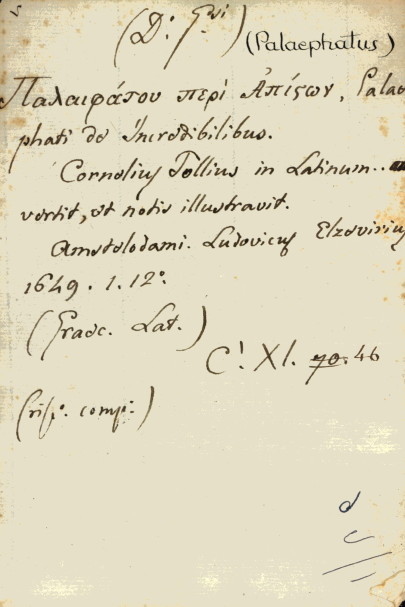 (D: G:si) (Palaephatus)
Παλαιφάτου περὶ Ἀπίϛων, Palae
phati de Incredibilibus.
Cornelius Tollius in Latinum
vertit, et notis illustravit.
Amstelodami. Ludovicus Elzevirius
1649. 1. 12°.
(Graec. Lat.)
C! XI. 70. 46
comp:)